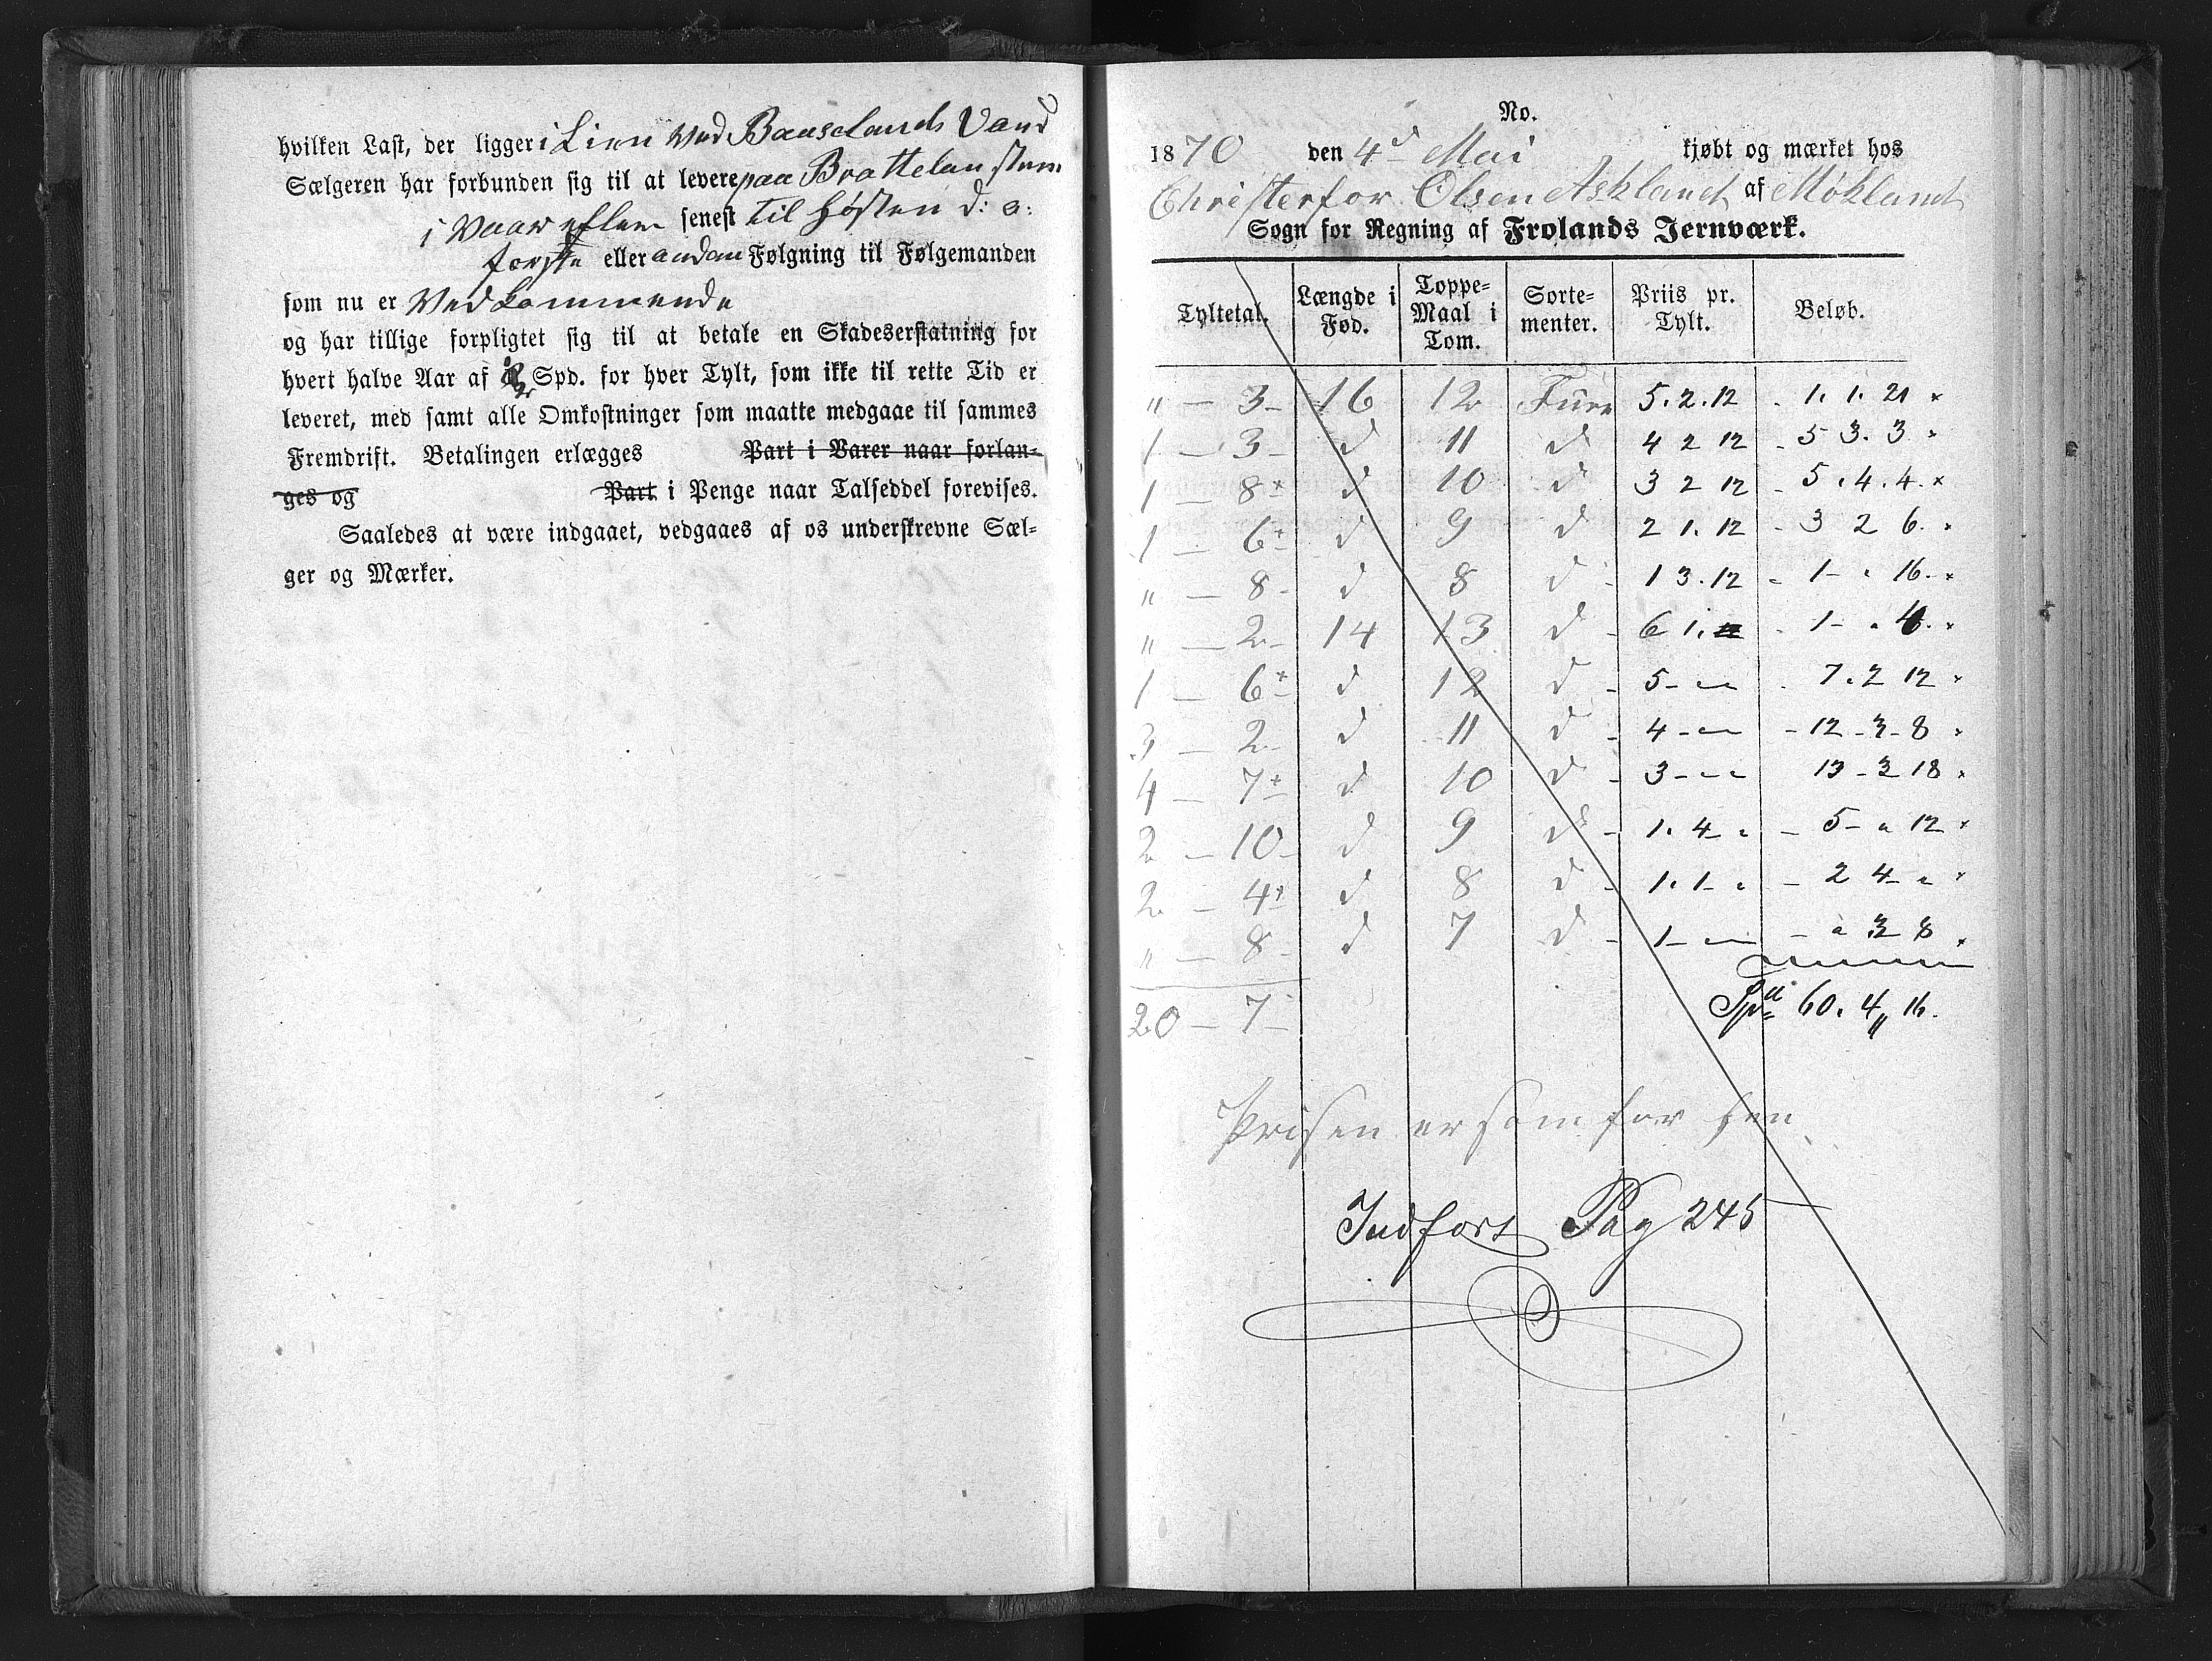 hvilken Last, der ligger i Lien Ved Baaselands Vand
Sælgeren har forbunden sig til at levere paa Brattelan strøm
i Vaar eller senest til Høsten d: a:
første eller andan Følgning til Følgemanden
som nu er Vedkommende
og har tillige forpligtet sig til at betale en Skadeserstatning for
hvert halve Aar af Spd. for hver Tylt, som ikke til rette Tid er
leveret, med samt alle Omkostninger som maatte medgaae til sammes
Fremdrift. Betalingen erlægges Part i Varer naar forlan-
ges og Part i Penge naar Talseddel forevises.
Saaledes at være indgaaet, vedgaaes af os underskrevne Sæl-
ger og Mærker.
No.
1870 den 4d Mai kjøbt og mærket hos
Christerfor Olsen Askland af Møkland
Sogn for Regning af Frolands Jernværk.
Tyltetal. Længde i Fod. Toppe-Maal i Tom. Sorte-menter. Priis pr. Tylt. Beløb.
" — 3 16 12 Furu 5. 2. 12 1. 1. 21
1 — 3 d 11 d 4 2 12 5 3. 3
1 — 8 d 10 d 3 2 12 5. 4. 4
1 — 6 d 9 d 2 1. 12 3 2 6
" — 8 d 8 d 1 3. 12 1 - " 16
" — 2 14 13 d 6 1. 1 - " 4
1 — 6 d 12 d 5 - " " 7. 2 12
3 — 2 d 11 d 4 - " " 12 - 3 - 8
4 — 7 d 10 d 3 - " " 13 - 3 18
2 — 10 d 9 d 1. 4 - " 5 - " 12
2 — 4 d 8 d 1. 1 - " 2 4 - "
" — 8 d 7 d 1 - " " " 3 8
20 — 7 Spd 60. 4 " 16.
Prisen er som før hen
Indført Pag 245